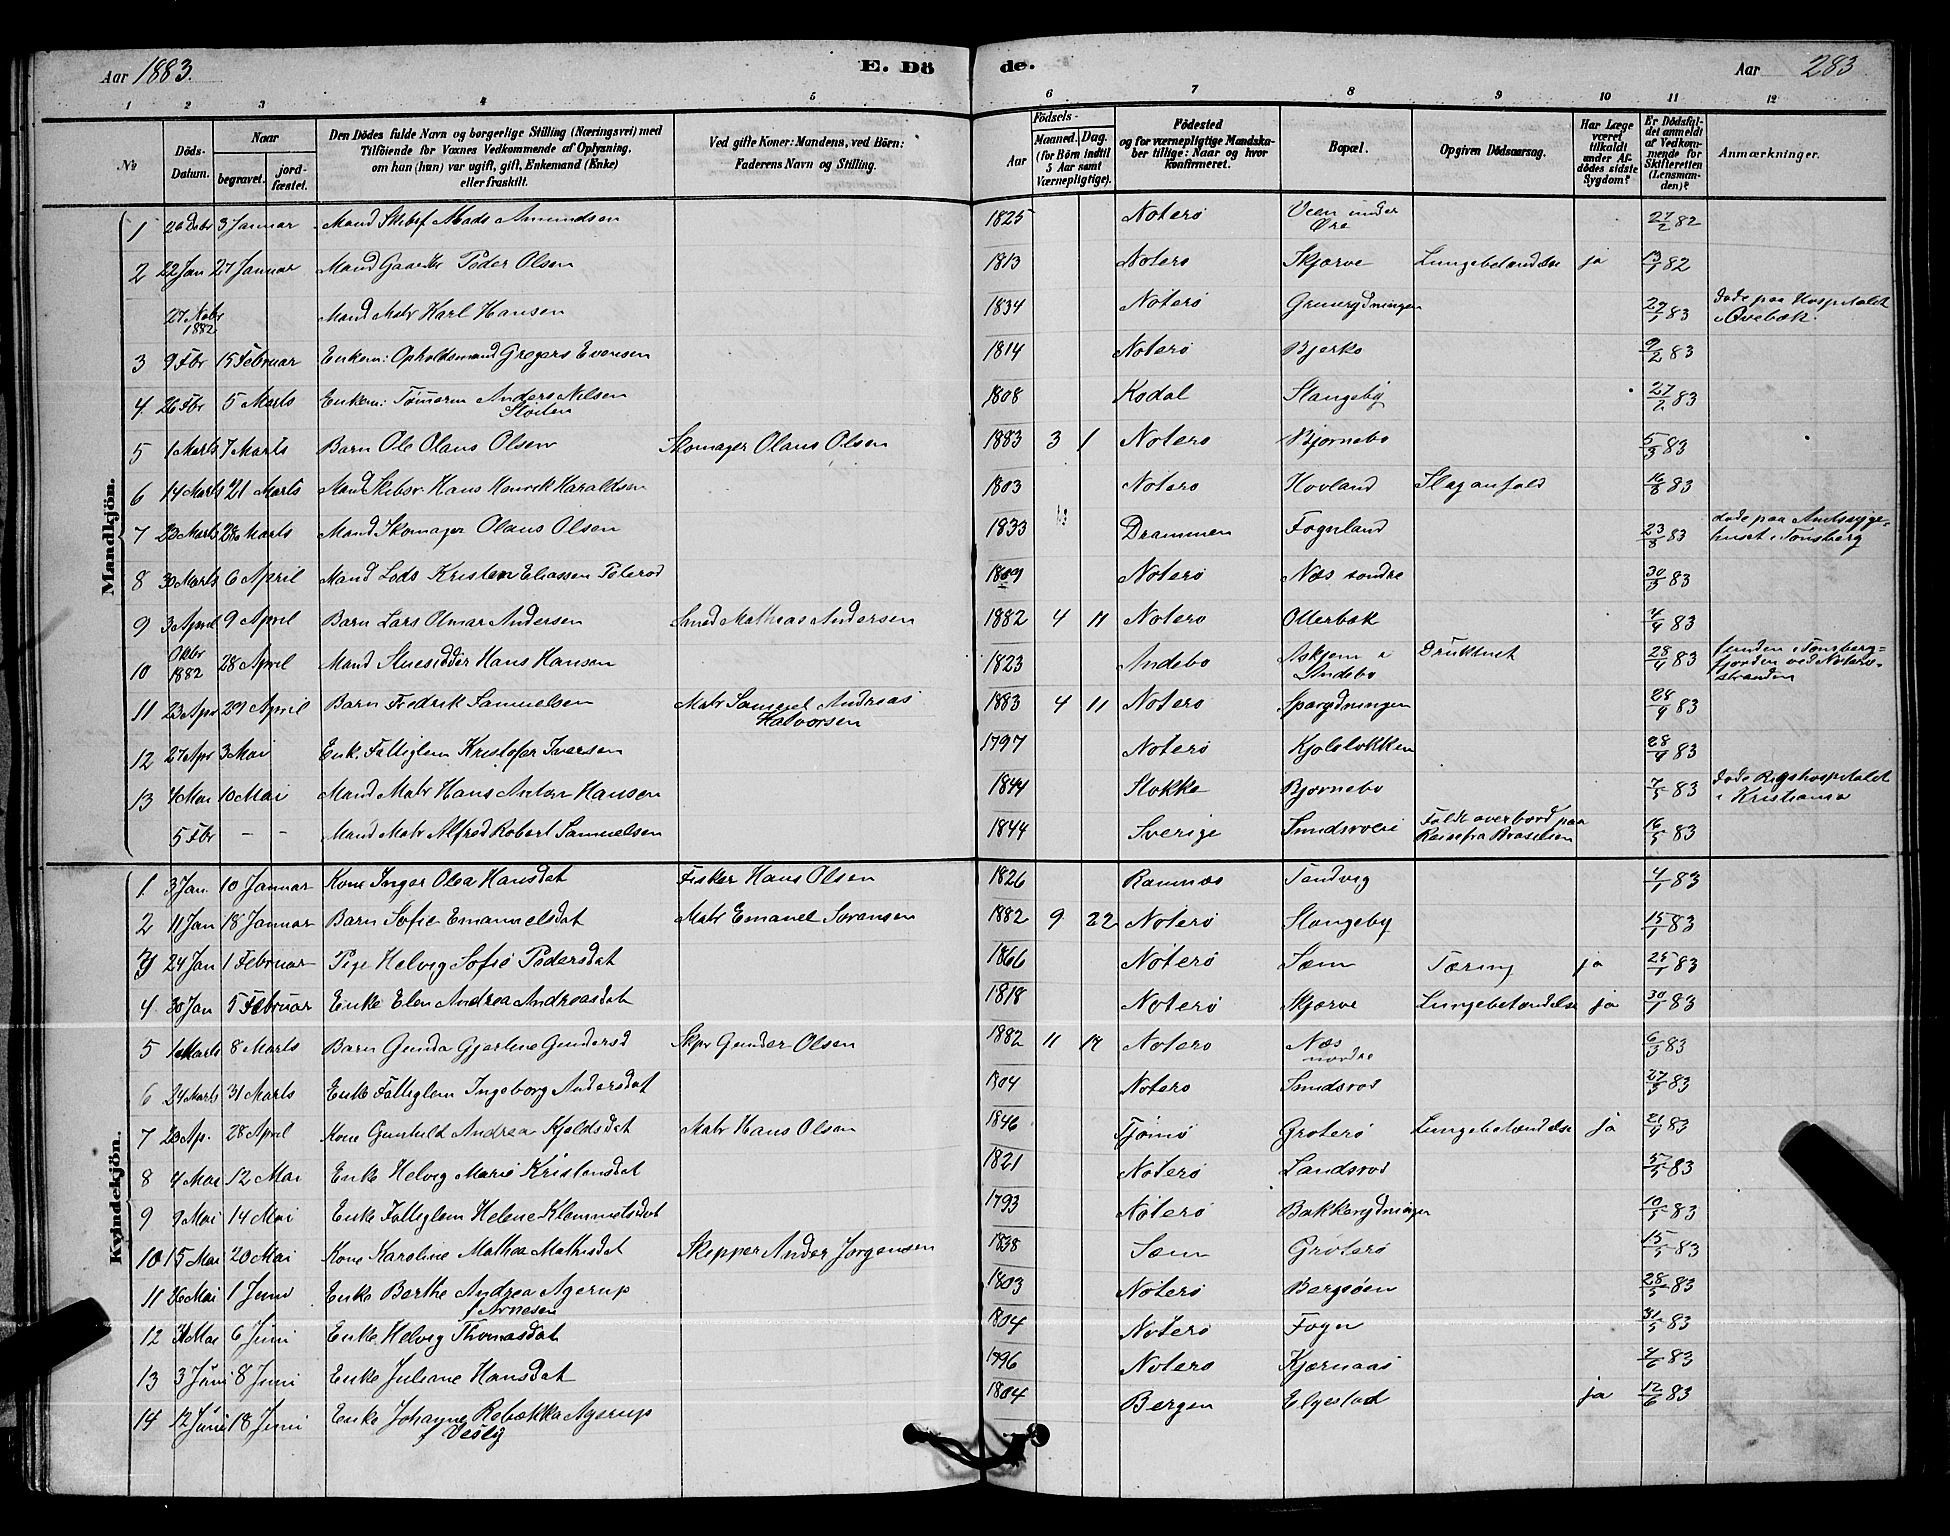 Aar 1883. E. Dö de. Aar 283
1 2 3 4 5 6 7 8 9 10 11 12
№
Döds-Datum.
Naar
begravet.
jord-fæstet.
Den Dödes fulde Navn og borgerlige Stilling (Næringsvei) med
Tilföiende for Voxnes Vedkommende af Oplysning,
om hun (han) var ugift, gift, Enkemand (Enke)
eller fraskilt.
Ved gifte Koner: Mandens, ved Börn:
Faderens Navn og Stilling.
Födsels-
Aar
Maaned. Dag.
(for Börn indtil
5 Aar samt
Værnepligtige).
Födested
og for værnepligtige Mandska-
ber tillige: Naar og hvor
konfirmeret.
Bopæl.
Opgiven Dödsaarsag.
Har Læge
været
tilkaldt
under Af-
dödes sidste
Sygdom?
Er Dödsfal-
det anmeldt
af Vedkom-
mende for
Skifteretten
(Lensman-
den)?
Anmærkninger.
Mandkjön.
1 26 Dcbr 3 Januar Mand Skibsf Mads Amundsen 1825 Noterö Veen under Öre 27/2 82
2 22 Jan 27 Januar Mand Gaardbr Peder Olsen 1813 Noterö Skjærve Lungebetændelse ja 13/1 82
27 Nobr 1882 Mand Matr Karl Hansen 1834 Nöterö Grunrydningen 27/1 83 döde paa Hospitalet
3 9 Fbr 15 Februar Enkem: Opholdsmand Gregers Evensen 1814 Noterö Bjerko 9/2 83
4 26 Fbr 5 Marts Enkem: Tömerm Anders Nilsen 1808 Kodal Stangeby 27/2 83
5 1 Marts 7 Marts Barn Ole Olaus Olsen Skomager Olaus Olsen 1883 3 1 Noterö Bjornebo 5/3 83
6 14 Marts 21 Marts Mand Skibsr Hans Henrik Haraldsen 1803 Noterö Hovland Slaganfald 16/3 83
7 22 Marts 28 Marts Mand Skomager Olaus Olsen 1833 Drammen Fognland 23/3 83 dode paa Amtssyge-
huset i Tonsberg
8 30 Marts 6 April Mand Lods Kristen Eliassen Toterod 1809 Noterö Næs sondre 30/3 83
9 3 April 9 April Barn Lars Olmar Andersen Smed Mathias Andersen 1882 4 11 Noterö Ollerbæk 4/4 83
10 Oktbr 1882 28 April Mand Stuesidder Hans Hansen 1823 Andebo Askjem i Andebo Druknet 28/4 83 funden i Tonsberg-
fjorden ved Noterö-
stranden
11 23 Apr 29 April Barn Fredrik Samuelsen Matr Samuel Andreas Halvorsen 1883 4 11 Noterö Sparydningen 28/4 83
12 27 Apr 3 Mai Enk. Fattiglem Kristofer Iversen 1797 Noterö Kjololokken 28/4 83
13 4 Mai 10 Mai Mand Matr Hans Anton Hansen 1844 Stokke Bjornebo 7/5 83 dode Rigshospitalet
i Kristiania
5 Fbr - - Mand Matr Alfred Robert Samuelsen 1844 Sverige Smidsroei Faldt overbord paa
Reise fra Brasilien 16/5 83
Kvindekjön.
1 3 Jan 10 Januar Kone Inger Olea Hansdat Fisker Hans Olsen 1826 Ramnæs Tandvig 4/1 83
2 11 Jan 18 Januar Barn Sofie Emanuelsdat Matr Emanel Sorensen 1882 9 22 Noterö Stangeby 15/1 83
3 24 Jan 1 Februar Pige Helvig Sofie Pedersdat 1866 Nöterö Sæm Tæring ja 25/1 83
4 30 Jan 5 Februar Enke Elen Andrea Andreasdat 1818 Noterö Skjærve Lungebetændelse ja 30/1 83
5 1 Marts 8 Marts Barn Gunda Gjerline Gundersd Skpr Gunder Olsen 1882 11 17 Noterö Næs nordre 6/3 83
6 24 Marts 31 Marts Enke Fattiglem Ingeborg Andersdat 1804 Noterö Smidsrod 27/3 83
7 20 Ap. 28 April Kone Gunhild Andrea Kjeldsdat Matr Hans Olsen 1846 Tjömö Groterö Lungebetændelse ja 21/4 83
8 4 Mai 12 Mai Enke Helvig Marie Kristensdat 1821 Noterö Landsrod 5/5 83
9 9 Mai 14 Mai Enke Fattiglem Helene Klemmetsdat 1793 Nöterö Bakkerydningen 10/5 83
10 15 Mai 20 Mai Kone Karoline Mathea Mathisdat Skepper Ander Jorgensen 1838 Sæm Gröterö 15/5 83
11 26 Mai 1 Juni Enke Berthe Andrea Agerup
f Arnesen 1803 Nöterö Bergsöen 28/5 83
12 31 Mai 6 Juni Enke Helvig Thomasdat 1804 Noterö Foyn 31/5 83
13 3 Juni 8 Juni Enke Juliane Hansdat 1796 Noterö Kjærnaas 4/6 83
14 12 Juni 18 Juni Enke Johanne Rebækka Agerup
f Vesly 1804 Bergen Elgestad ja 12/6 83